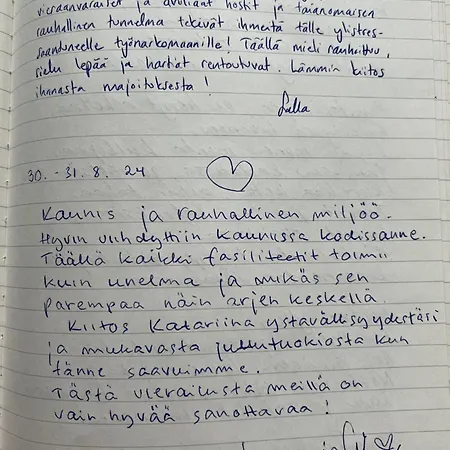 vieraanvaraiset ja avuliaat hostit ja taianomaisen
rauhallinen tunnelma tekivät ihmeitä tälle ylistres-
saantuneelle työnarkomaanille! Täällä mieli rauhoittuu,
sielu lepää ja hartiat rentoutuvat. Lämmin kiitos
ihanasta majoituksesta!
Lulla
30.-31.8.24
Kaunis ja rauhallinen miljöö.
Hyvin viihdyttiin kauniissa kodissanne.
Täällä kaikki fasiliteetit toimii
kuin unelma ja mikäs sen
parempaa näin arjen keskellä.
Kiitos Katariina ystävällisyydestäsi
ja mukavasta juttutuokiosta kun
tänne saavuimme.
Tästä vierailusta meillä on
vain hyvää sanottavaa!